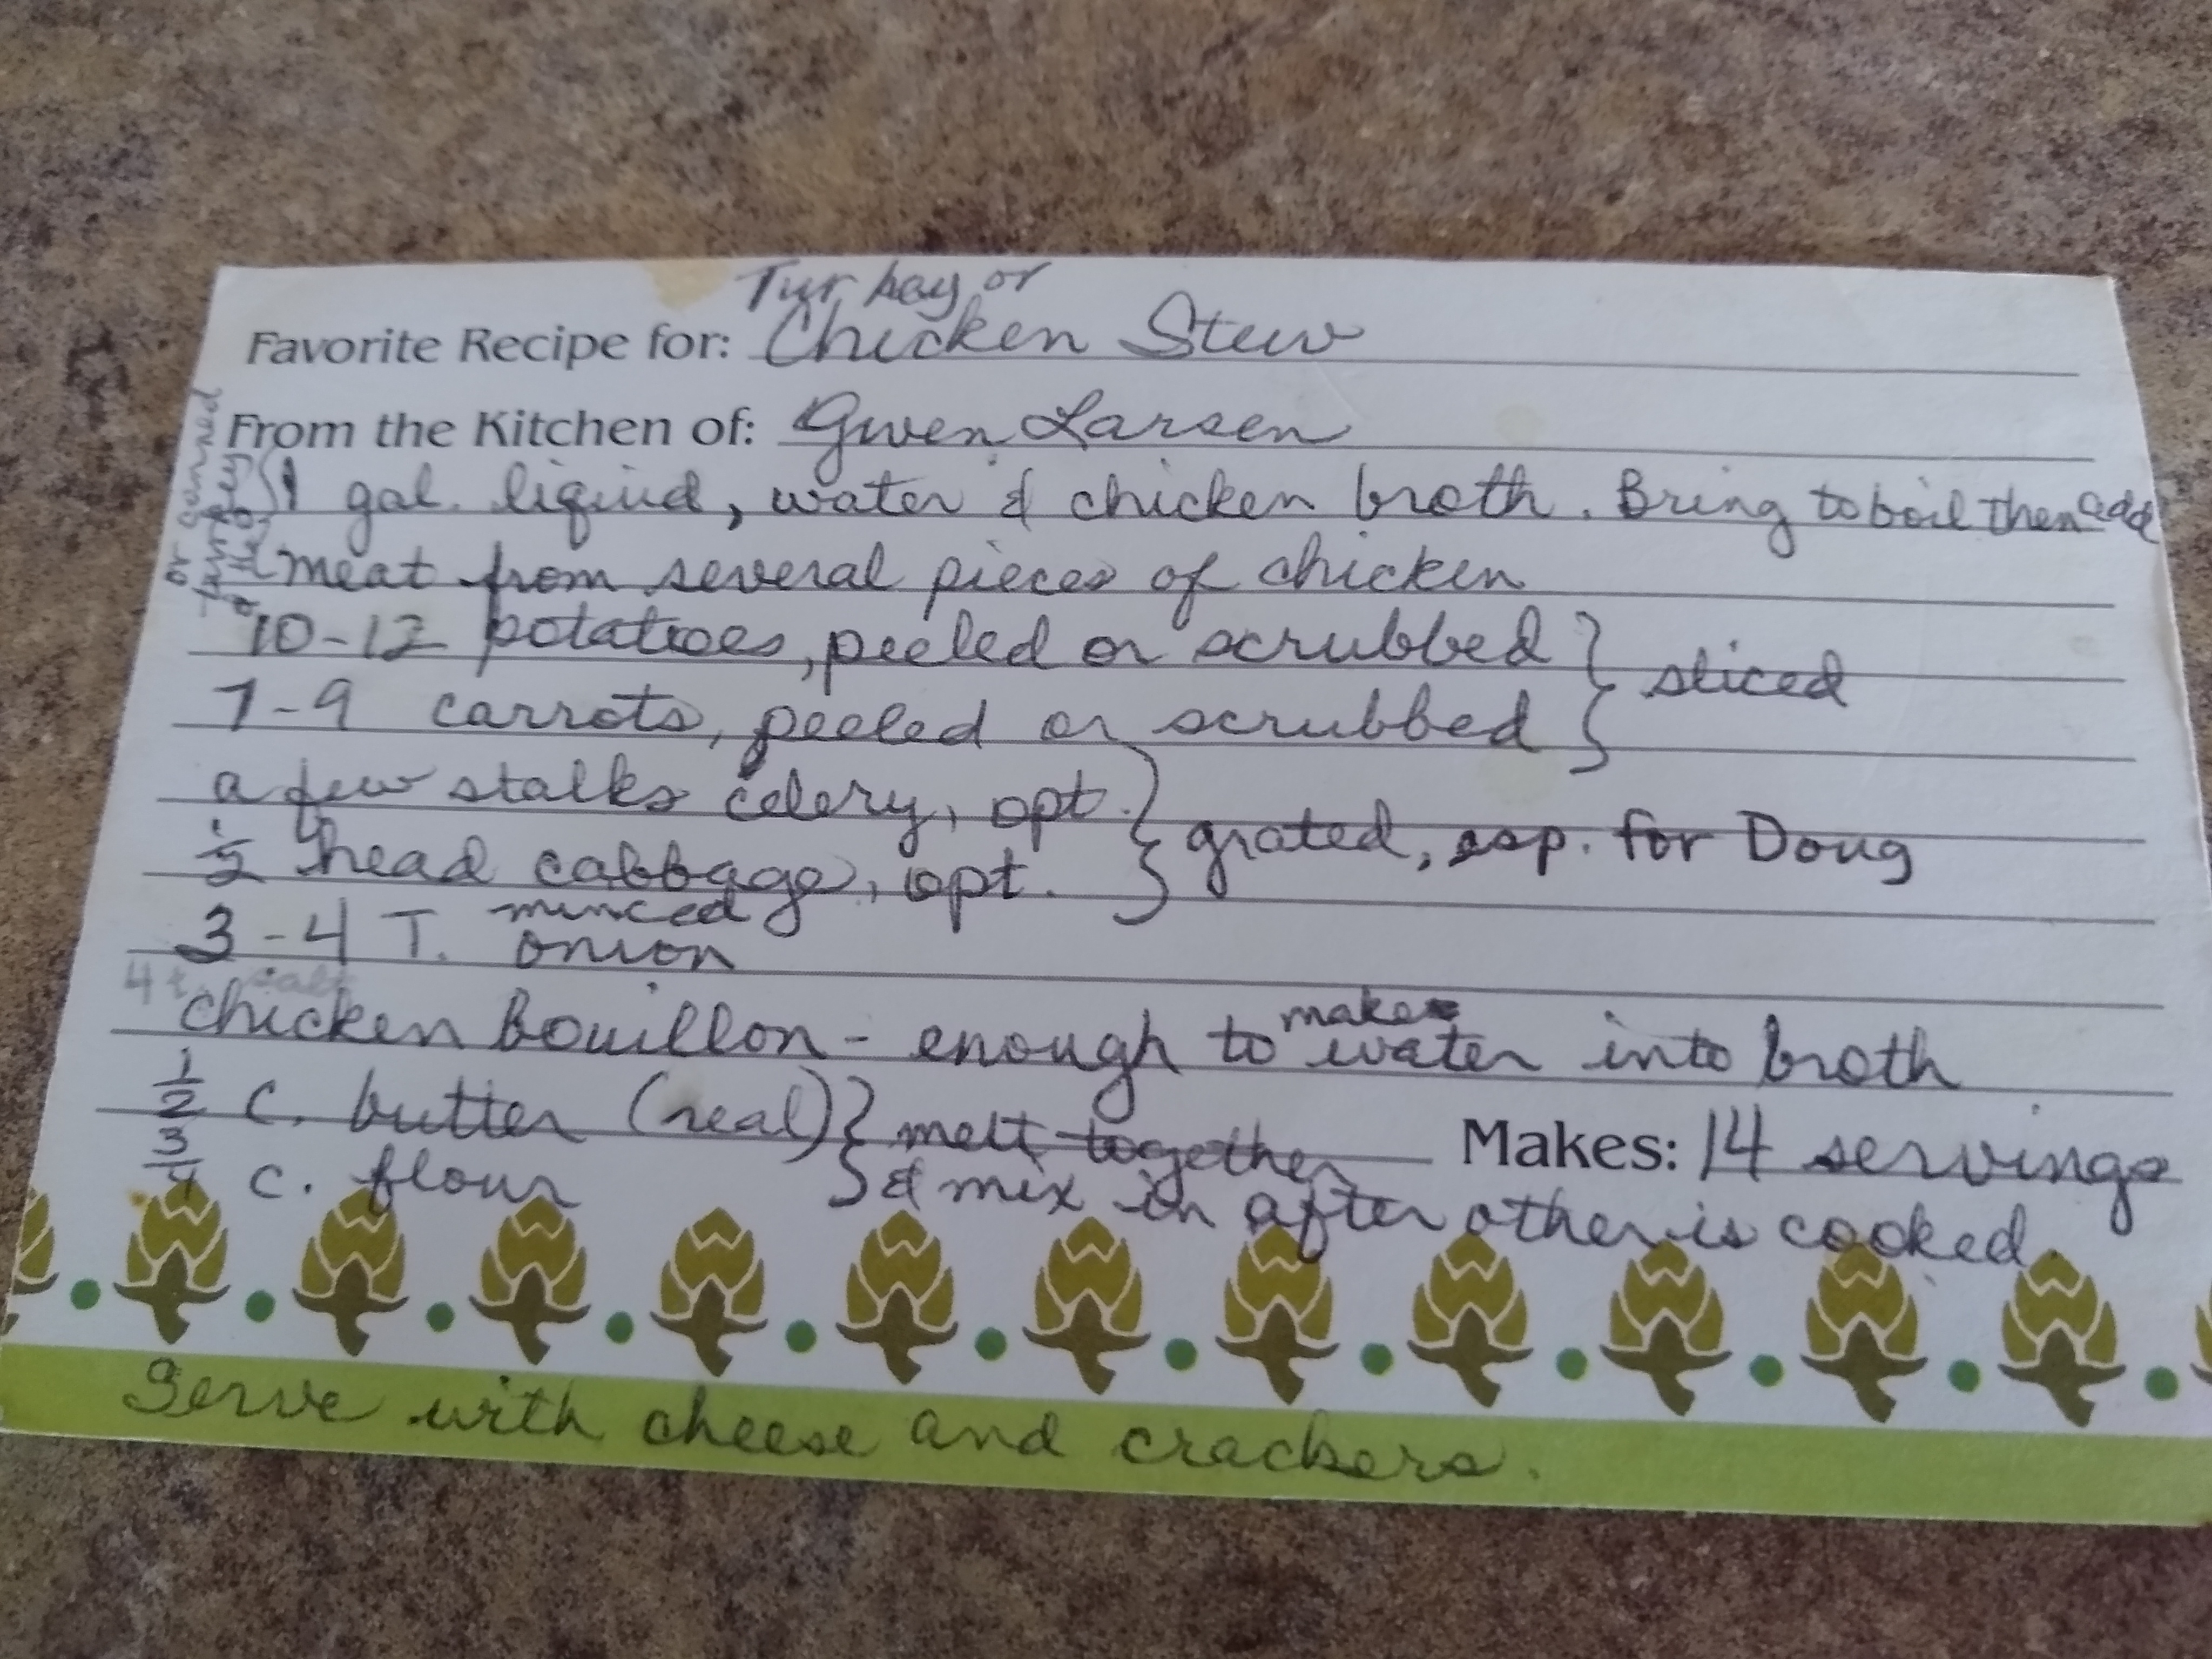 Turkey or
Favorite Recipe for: Chicken Stew
From the Kitchen of: Gwen Larsen
1 gal. liquid, water & chicken broth. Bring to boil then add
meat from several pieces of chicken
or canned
turkey
10-12 potatoes, peeled or scrubbed } sliced
7-9 carrots, peeled or scrubbed
a few stalks celery, opt. } grated, esp. for Doug
1/2 head cabbage, opt.
3-4 T. minced onion
4 t. salt
chicken bouillon - enough to make water into broth
1/2 c. butter (real) } melt together
3/4 c. flour & mix in after other is cooked.
Makes: 14 servings
Serve with cheese and crackers.